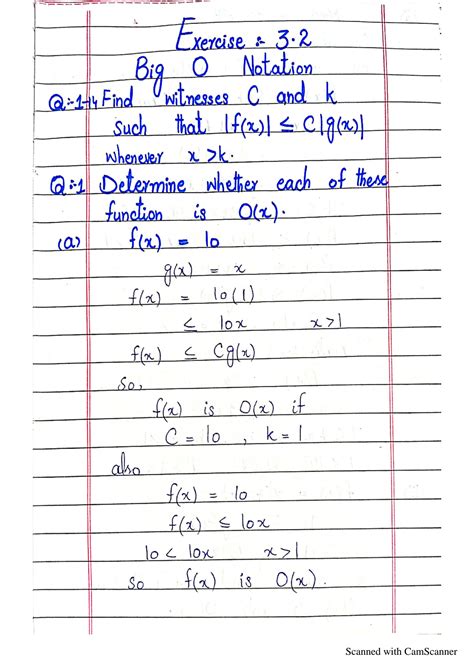 Exercise :- 3.2
Big O Notation
Q:-1-14 Find witnesses C and k
such that |f(x)| ≤ C|g(x)|
whenever x >k.
Q:-1 Determine whether each of these
function is O(x).
(a) f(x) = 10
g(x) = x
f(x) = 10(1)
≤ 10x x>1
f(x) ≤ Cg(x)
So,
f(x) is O(x) if
C = 10 , k = 1
also
f(x) = 10
f(x) ≤ 10x
10 < 10x x>1
so f(x) is O(x).
Scanned with CamScanner